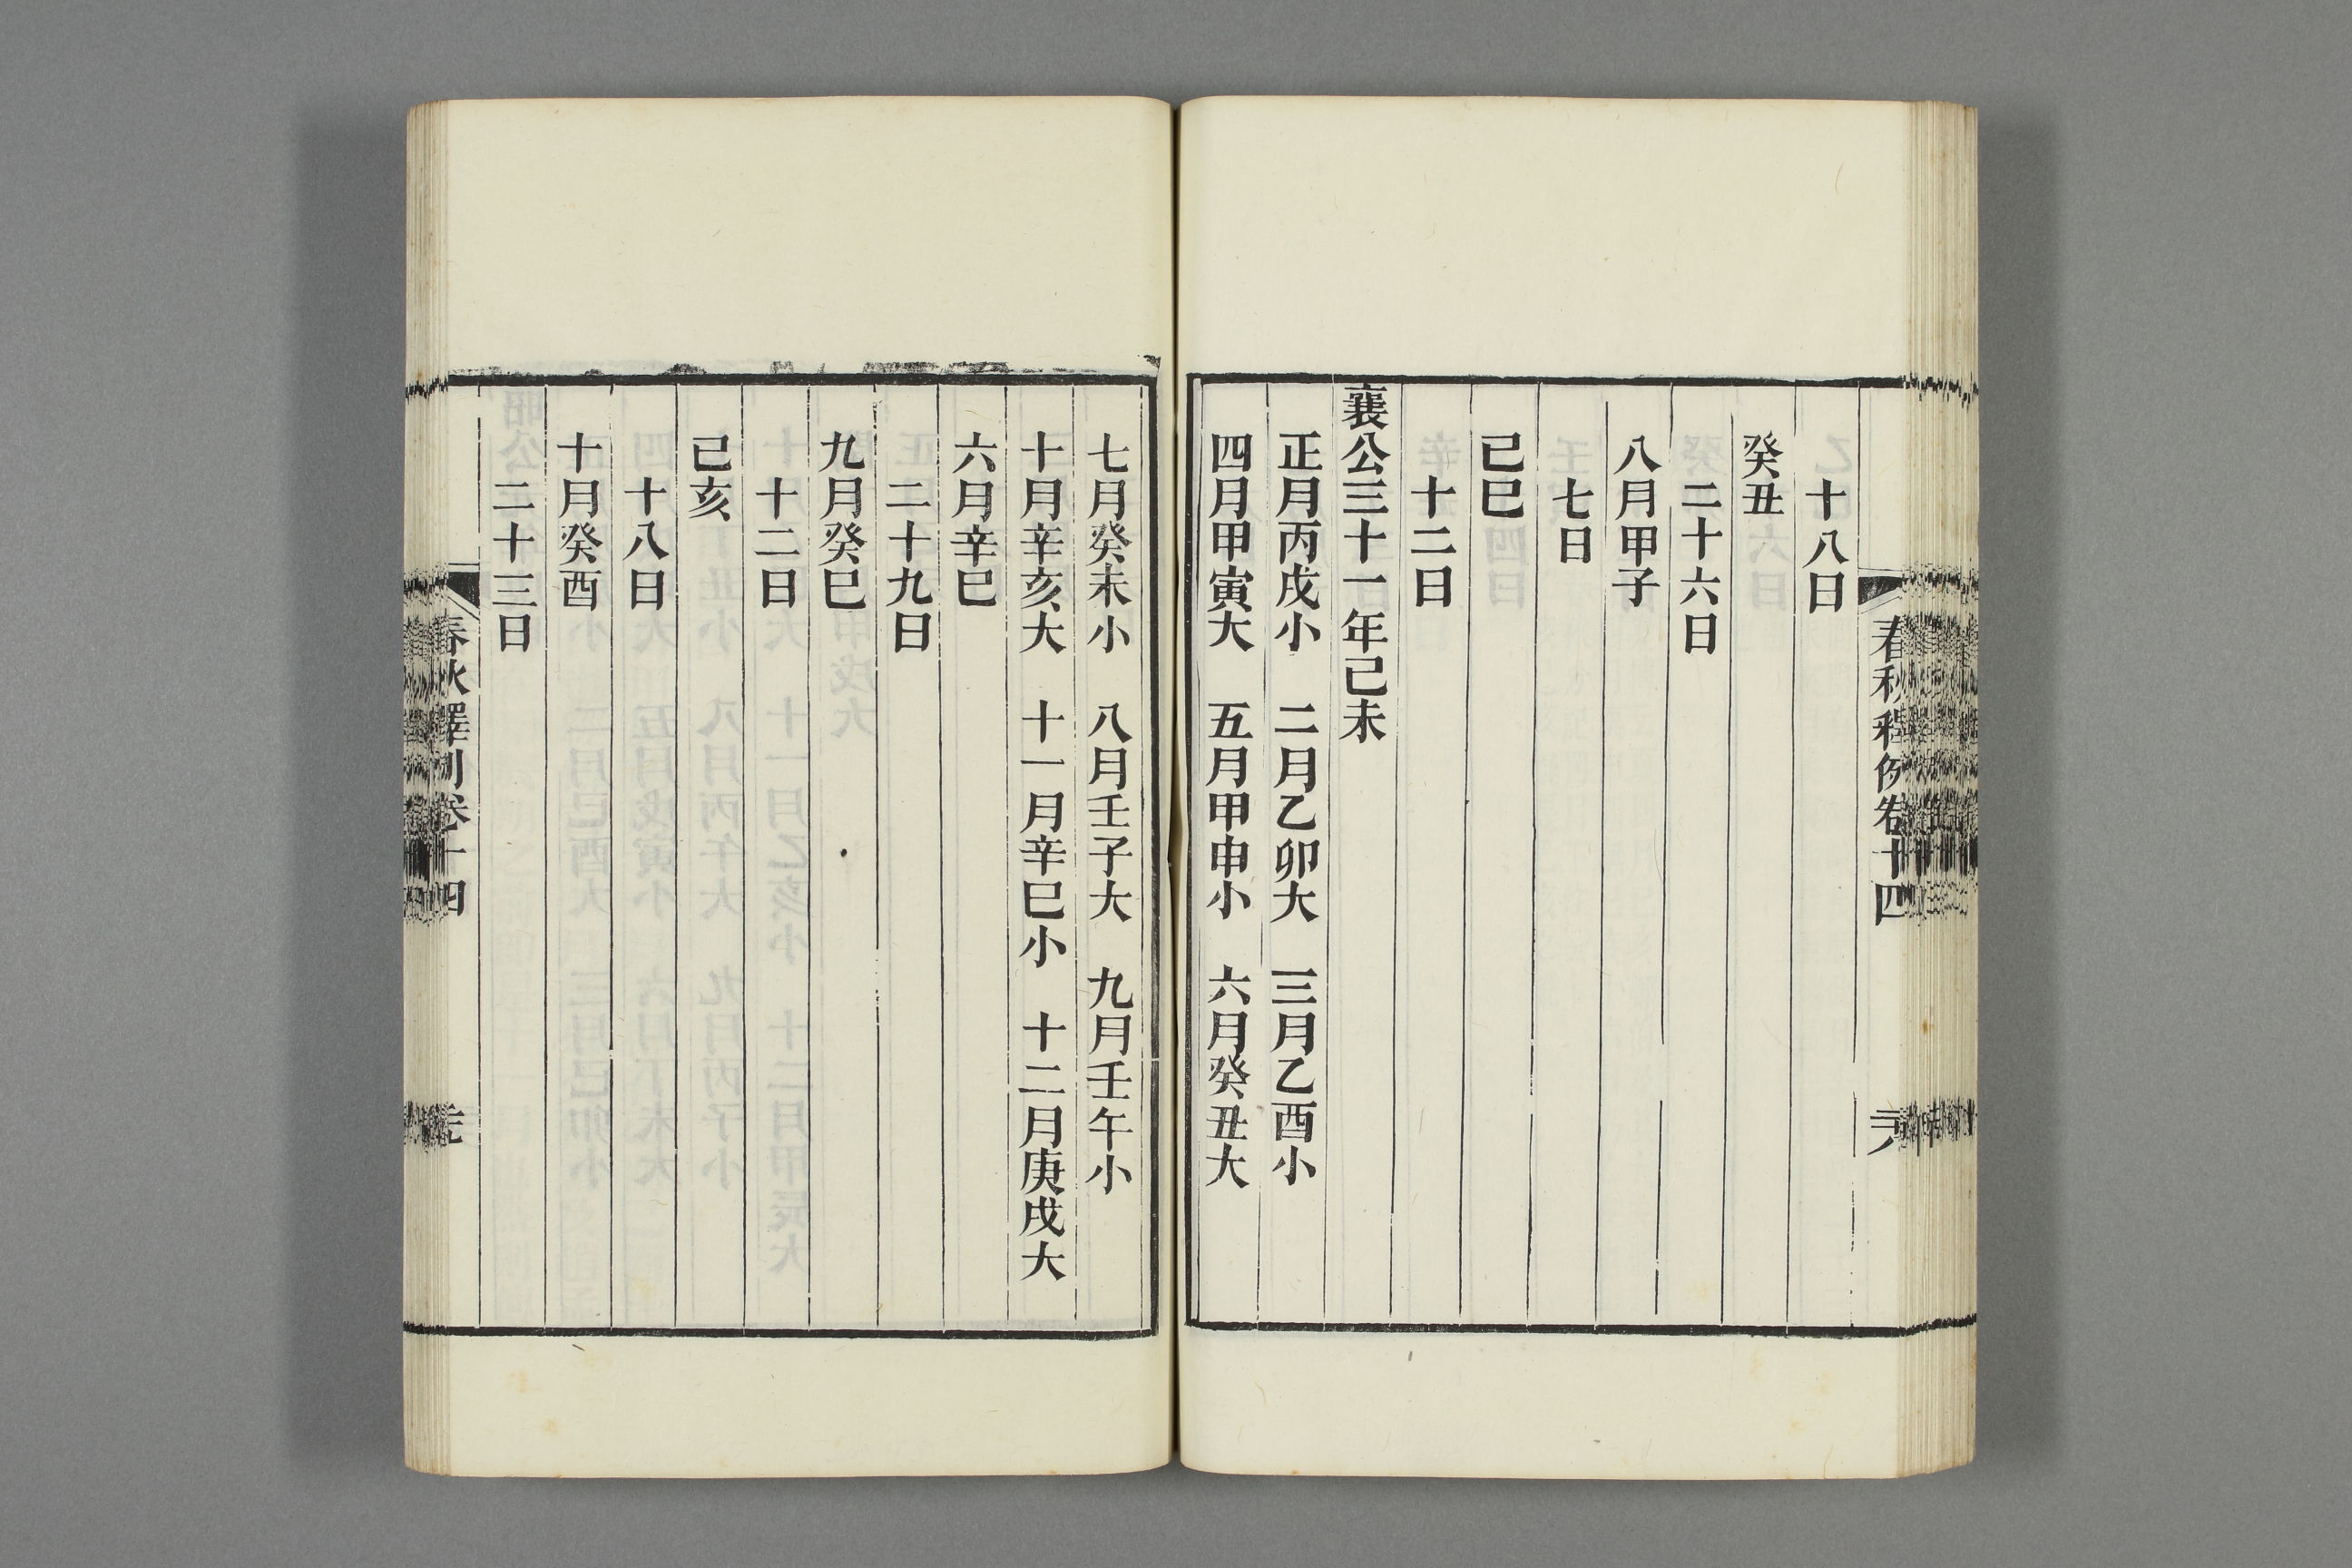 十八日
癸丑
二十六日
八月甲子
七日
己巳
十二日
襄公三十一年己未
正月丙戌小　二月乙卯大　三月乙酉小
四月甲寅大　五月甲申小　六月癸丑大
七月癸未小　八月壬子大　九月壬午小
十月辛亥大　十一月辛巳小　十二月庚戌大
六月辛巳
二十九日
九月癸巳
十二日
己亥
十八日
十月癸酉
二十三日
春秋釋例卷十四